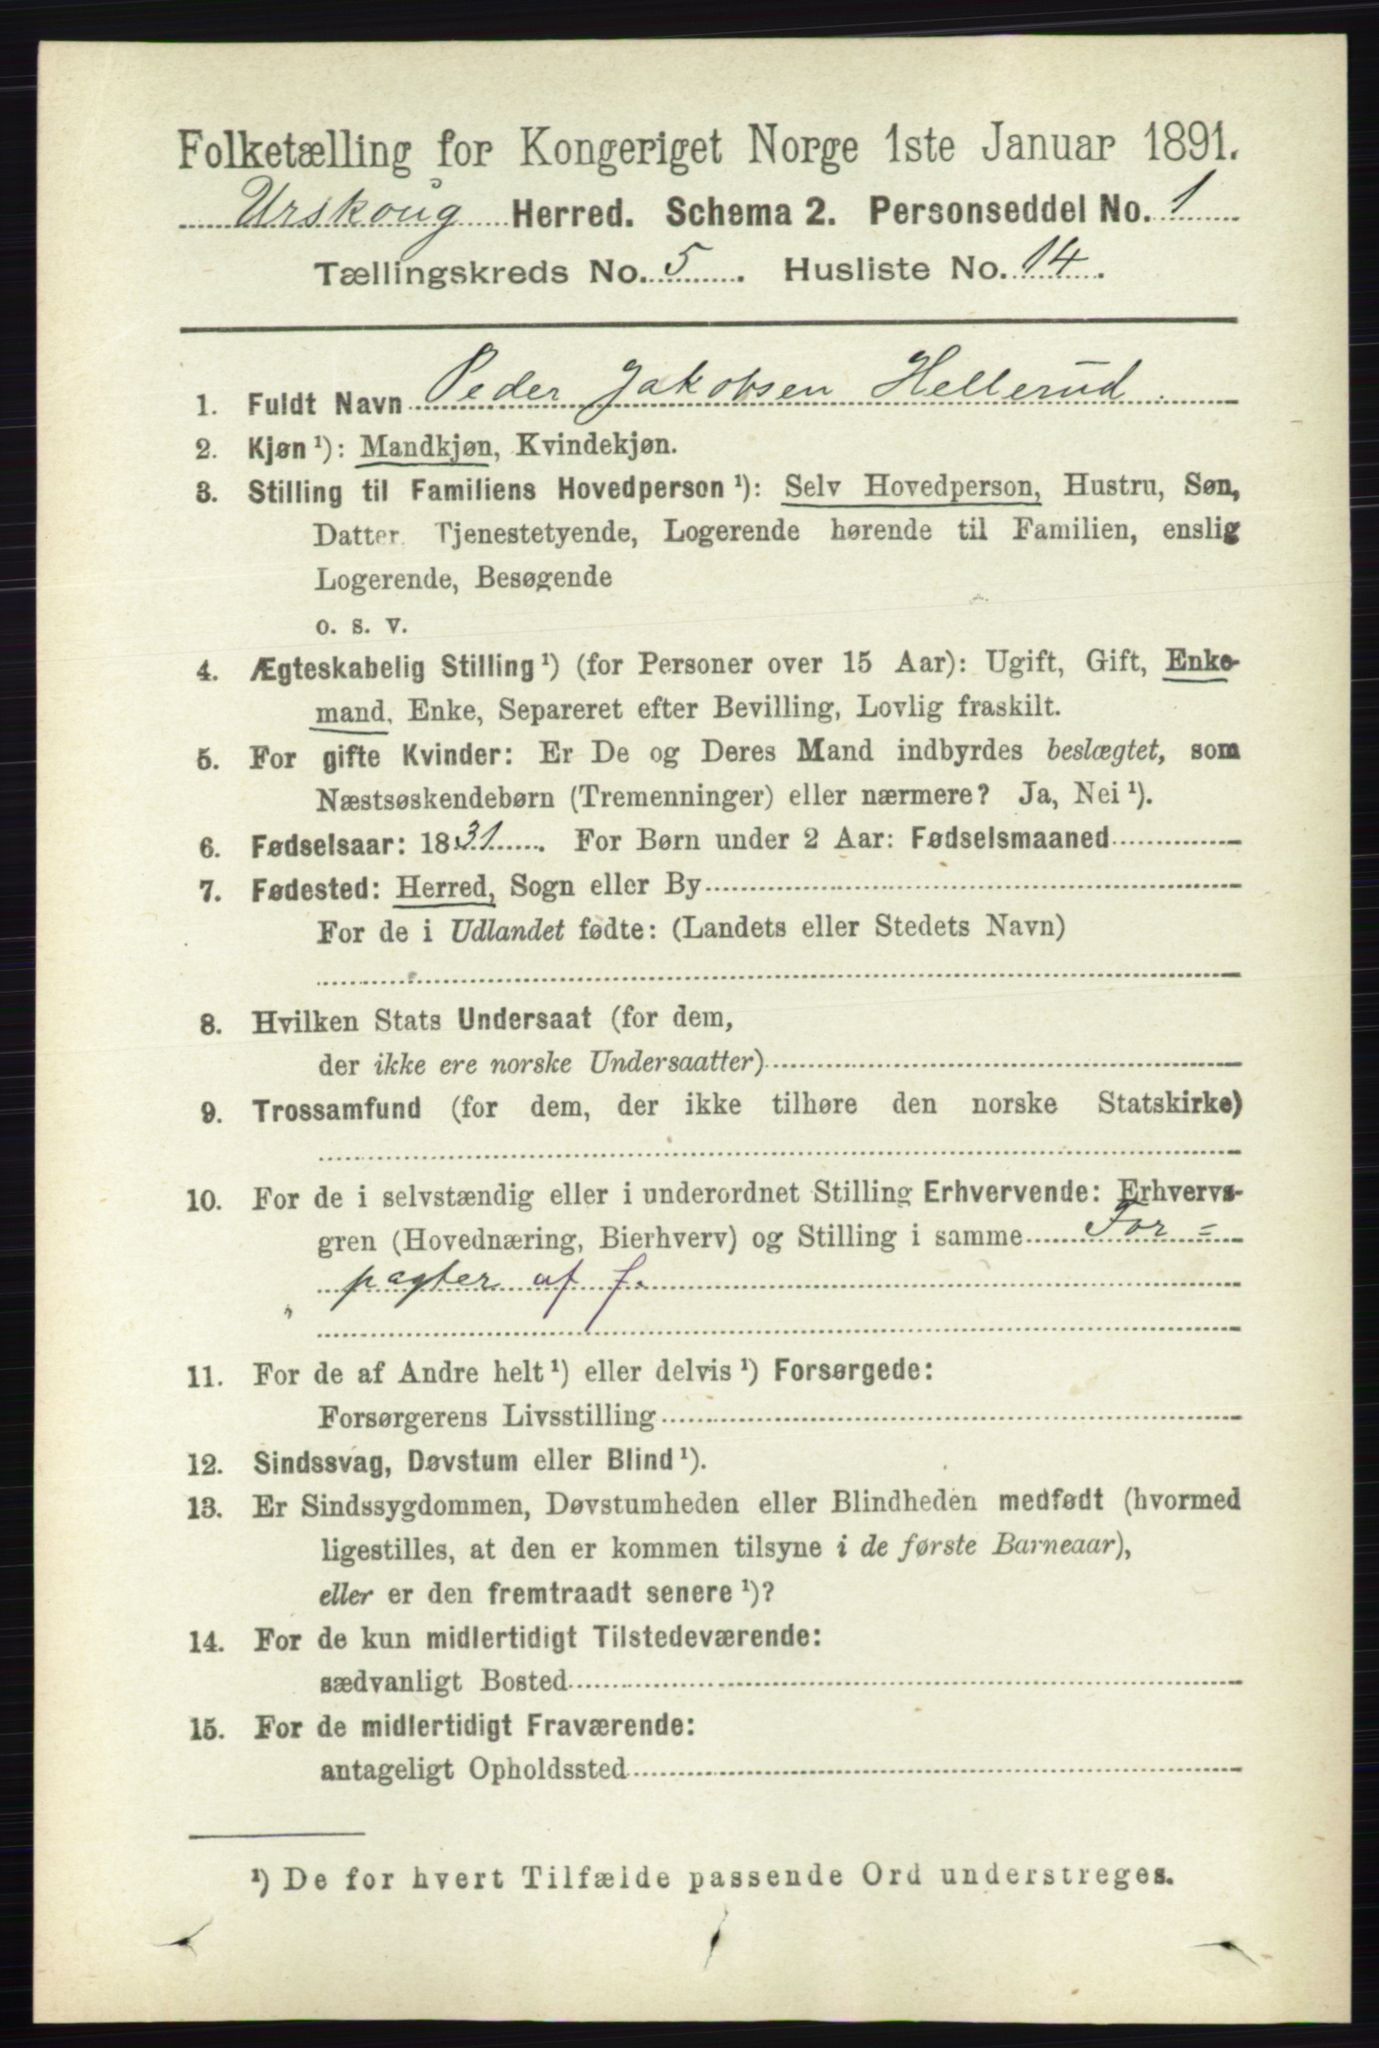 Folketælling for Kongeriget Norge 1ste Januar 1891.
Urskoug Herred. Schema 2. Personseddel No. 1
Tællingskreds No. 5. Husliste No. 14.
1. Fuldt Navn Peder Jakobsen Hellerud
2. Kjøn ¹): Mandkjøn, Kvindekjøn.
3. Stilling til Familiens Hovedperson ¹): Selv Hovedperson, Hustru, Søn,
Datter, Tjenestetyende, Logerende hørende til Familien, enslig
Logerende, Besøgende
o. s. v.
4. Ægteskabelig Stilling ¹) (for Personer over 15 Aar): Ugift, Gift, Enke-
mand, Enke, Separeret efter Bevilling, Lovlig fraskilt.
5. For gifte Kvinder: Er De og Deres Mand indbyrdes beslægtet, som
Næstsøskendebørn (Tremenninger) eller nærmere? Ja, Nei ¹).
6. Fødselsaar: 1831. For Børn under 2 Aar: Fødselsmaaned
7. Fødested: Herred, Sogn eller By
For de i Udlandet fødte: (Landets eller Stedets Navn)
8. Hvilken Stats Undersaat (for dem,
der ikke ere norske Undersaatter)
9. Trossamfund (for dem, der ikke tilhøre den norske Statskirke)
10. For de i selvstændig eller i underordnet Stilling Erhvervende: Erhvervs-
gren (Hovednæring, Bierhverv) og Stilling i samme For=
pagter af f.
11. For de af Andre helt ¹) eller delvis ¹) Forsørgede:
Forsørgerens Livsstilling
12. Sindssvag, Døvstum eller Blind ¹).
13. Er Sindssygdommen, Døvstumheden eller Blindheden medfødt (hvormed
ligestilles, at den er kommen tilsyne i de første Barneaar),
eller er den fremtraadt senere ¹)?
14. For de kun midlertidigt Tilstedeværende:
sædvanligt Bosted
15. For de midlertidigt Fraværende:
antageligt Opholdssted
¹) De for hvert Tilfælde passende Ord understreges.